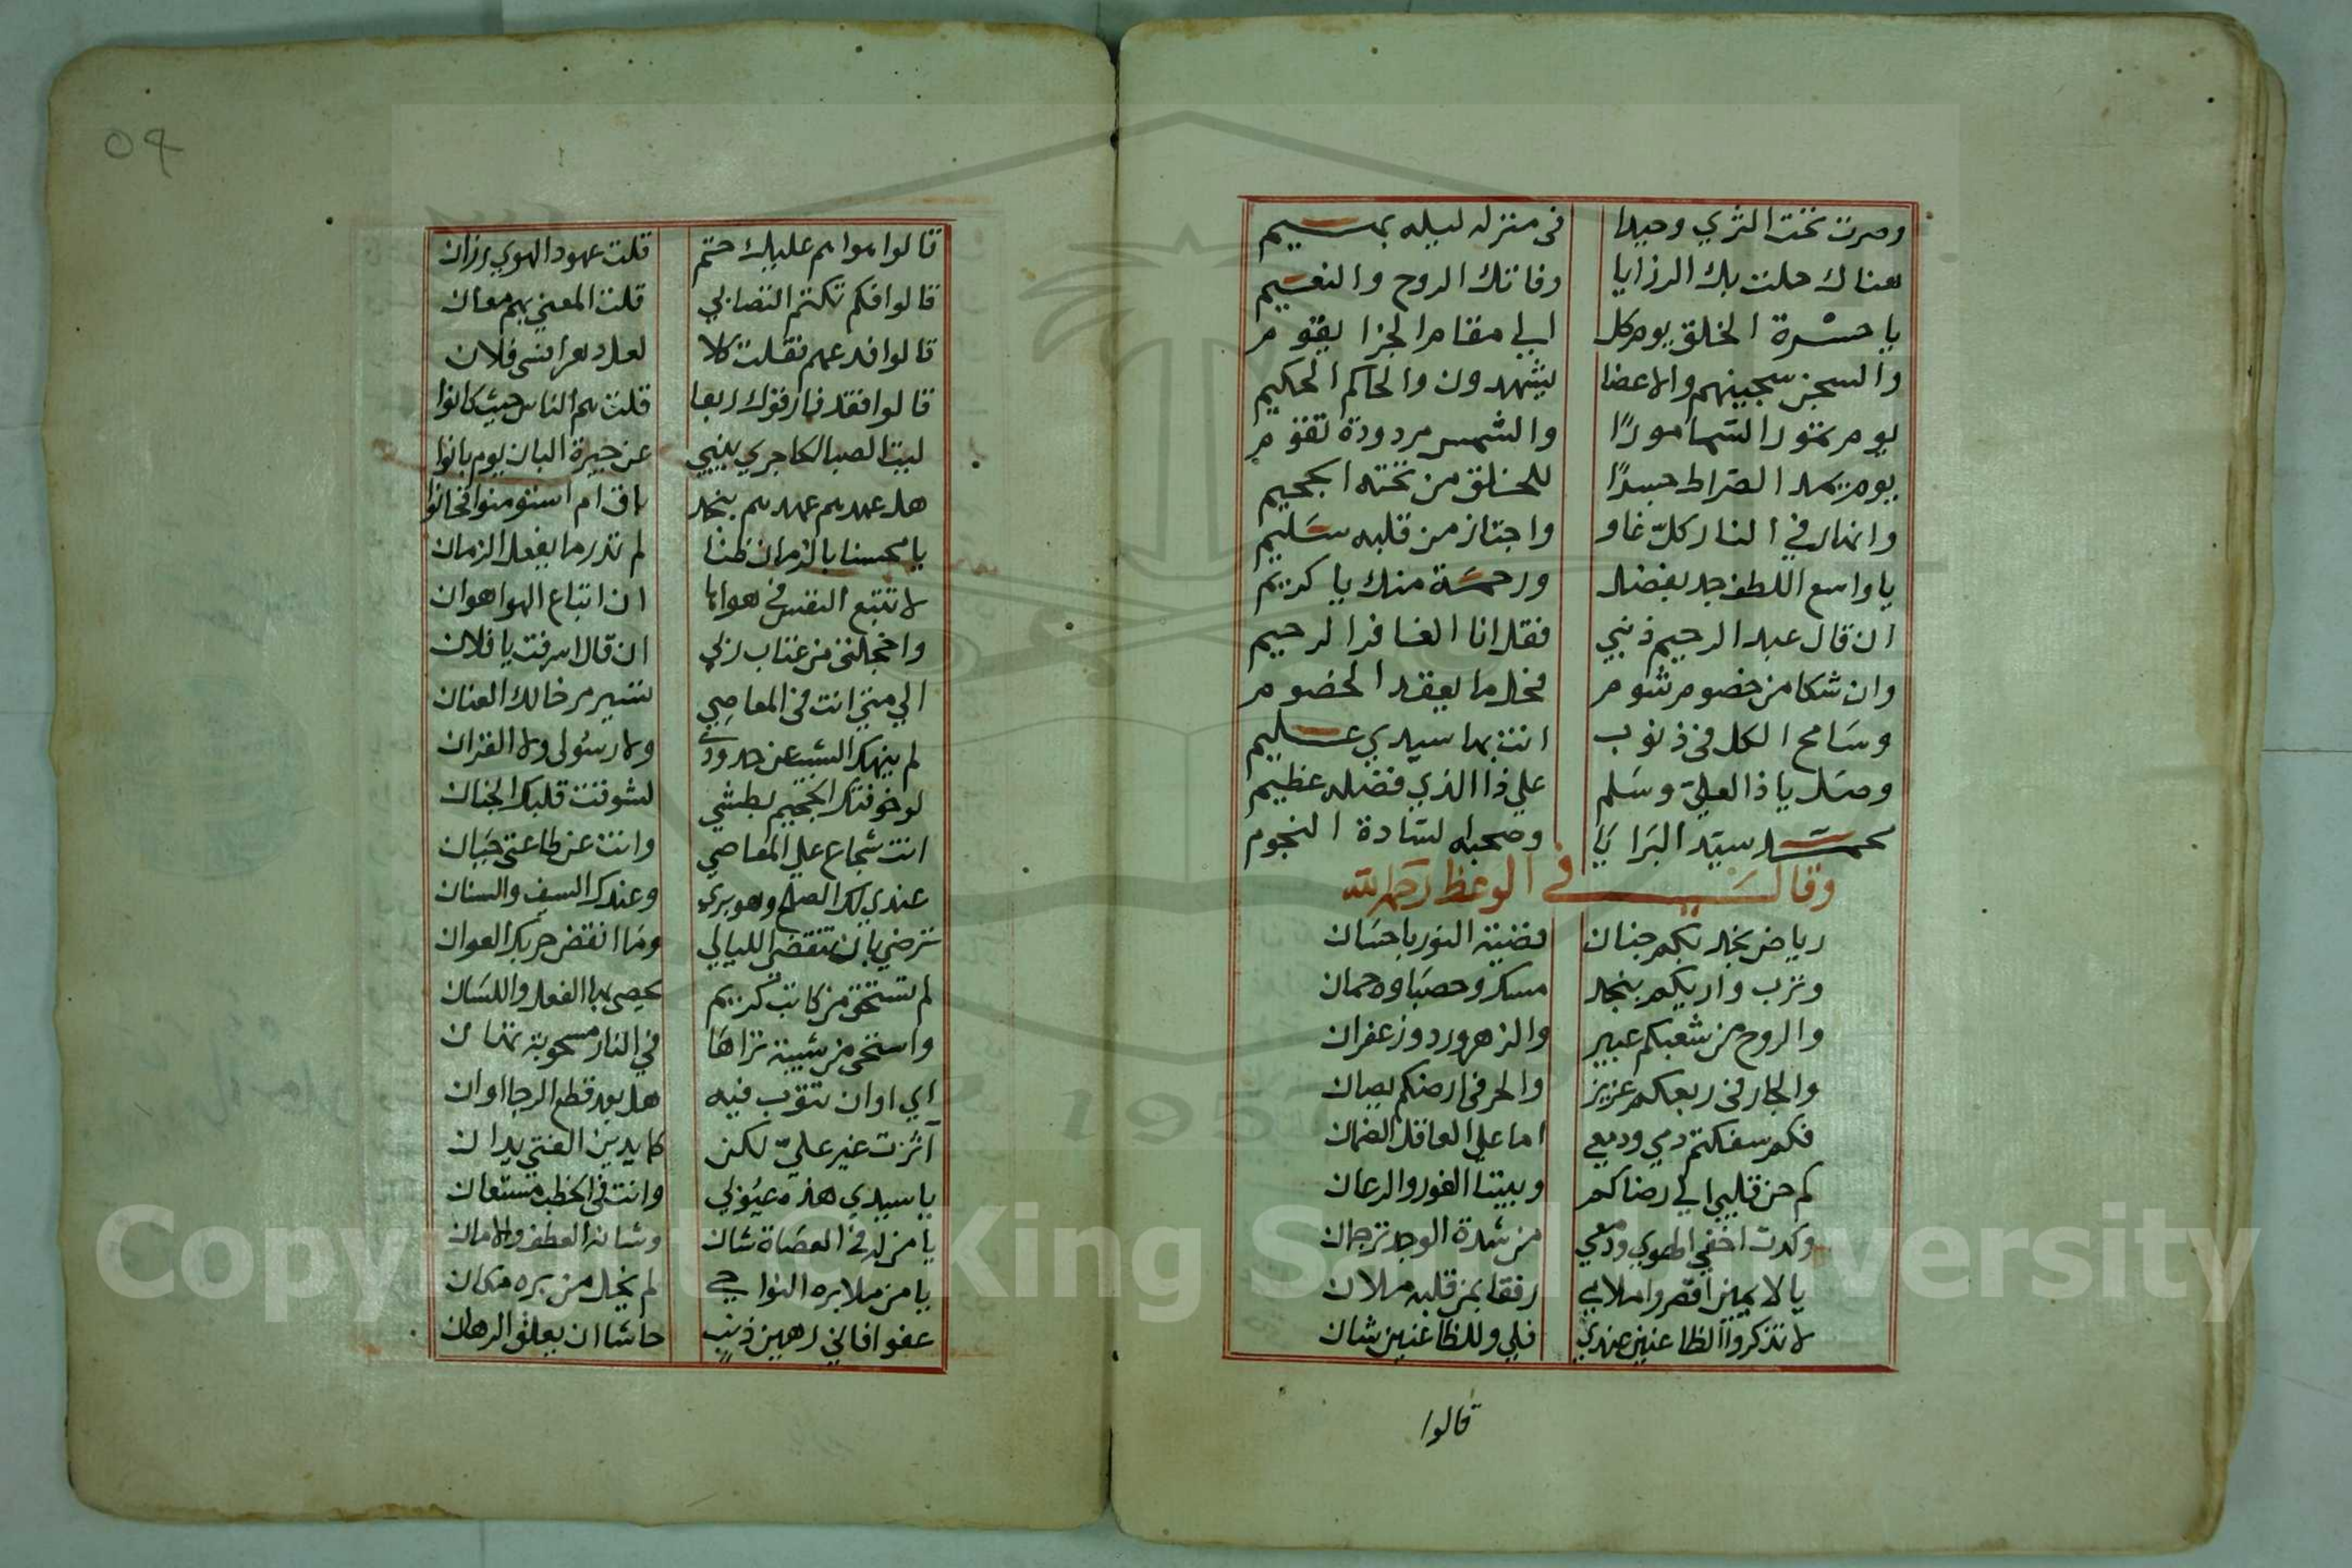 وصرت تحت الثري وحيدا في منزل ليله بهيم
هناك حلت بك الرزايا وفاتك الروح والنعيم
يا حسرة الخلق يوم كل الي مقام الجزا يقوم
والسجن سجينهم والاعضا يشهدون والحاكم الحكيم
يوم تمور السما مورًا والشمس مردودة تقوم
يوم يمد الصراط جسرًا للخلق من تحته الجحيم
وانهار في النار كلّ غاو واجتاز من قلبه سليم
يا واسع اللطف جد بفضل ورحمة منك يا كريم
ان قال عبد الرحيم ذنبي فقل انا الغافر الرحيم
وان شكا من خصوم شوم فحل ما يعقد الخصوم
وسامح الكل في ذنوب انت بها سيدي عليم
وصل يا ذا العلي وسلم علي ذا الذي فضله عظيم
محمد سيد البرايا وصحبه السادة النجوم
وقال في الوعظ رحمه الله
رياض نجد بكم جنان فضية النور يا حسان
وترب واديكم بنجد مسك وحصباوه جمان
والروح من شعبكم عبير والزهر ورد وزعفران
والجار في ربعكم عزيز والحر في ارضكم يصان
فكم سفكتم دمي ودمعي اما علي العاقل الضمان
كم حن قلبي الي رضاكم وبيننا الغور والرعان
وكدت اخفي الهوي ودمعي من شدة الوجد ترجمان
يا لايمين اقصروا ملامي رفقا بمن قلبه ملان
لا تذكروا الظاعنين عندي فلي وللظاعنين شان
قالوا
٥٩
قالوا هواهم عليك حتم قلت عهود الهوي رزان
قالوا فكم تكتم التصابي قلت المعني بهم معان
قالوا فدعهم فقلت كلا لعل دهرا نسي فلان
قالوا فقد فارقوك ربعا قلت هم الناس حيث كانوا
ليت الصبا الحاجري ينبي عن جيرة البان يوم بانوا
هل عهدهم عهدهم بنجد باق ام استؤمنوا فخانوا
يا محسنا بالزمان ظنا لم تدر ما يفعل الزمان
لا تتبع النفس في هواها ان اتباع الهوا هوان
واخجلتي من عتاب ربي ان قال اسرفت يا فلان
الي متي انت في المعاصي تسير مرخا لك العنان
لم ينهك الشيب عن حدودي ولا رسولي ولا القران
لو خوفتك الجحيم بطشي لشوقت قلبك الجنان
انت شجاع علي المعاصي وانت عن طاعتي جبان
عندي لك الصلح وهو بري وعندك السيف والسنان
ترضي بان تنقضي الليالي وما انقضي حربك العوان
لم تستحي من كاتب كريم يحصي بها الفعل واللسان
واستحي من شيبة تراها في النار مسحوبة تهان
اي اوان تتوب فيه هل بعد قطع الرجا اوان
آثرت غير علي لكن كما يدين الفتي يدان
يا سيدي هذه عيوبي وانت في الخطب مستعان
يا من له في العصاة شان وشانه العطف والامان
يا من ملا بره النواحي لم يخل من بره مكان
عفوا فاني رهين ذنب حاشا ان يعلق الرهان
Copyright © King Saud University
1957